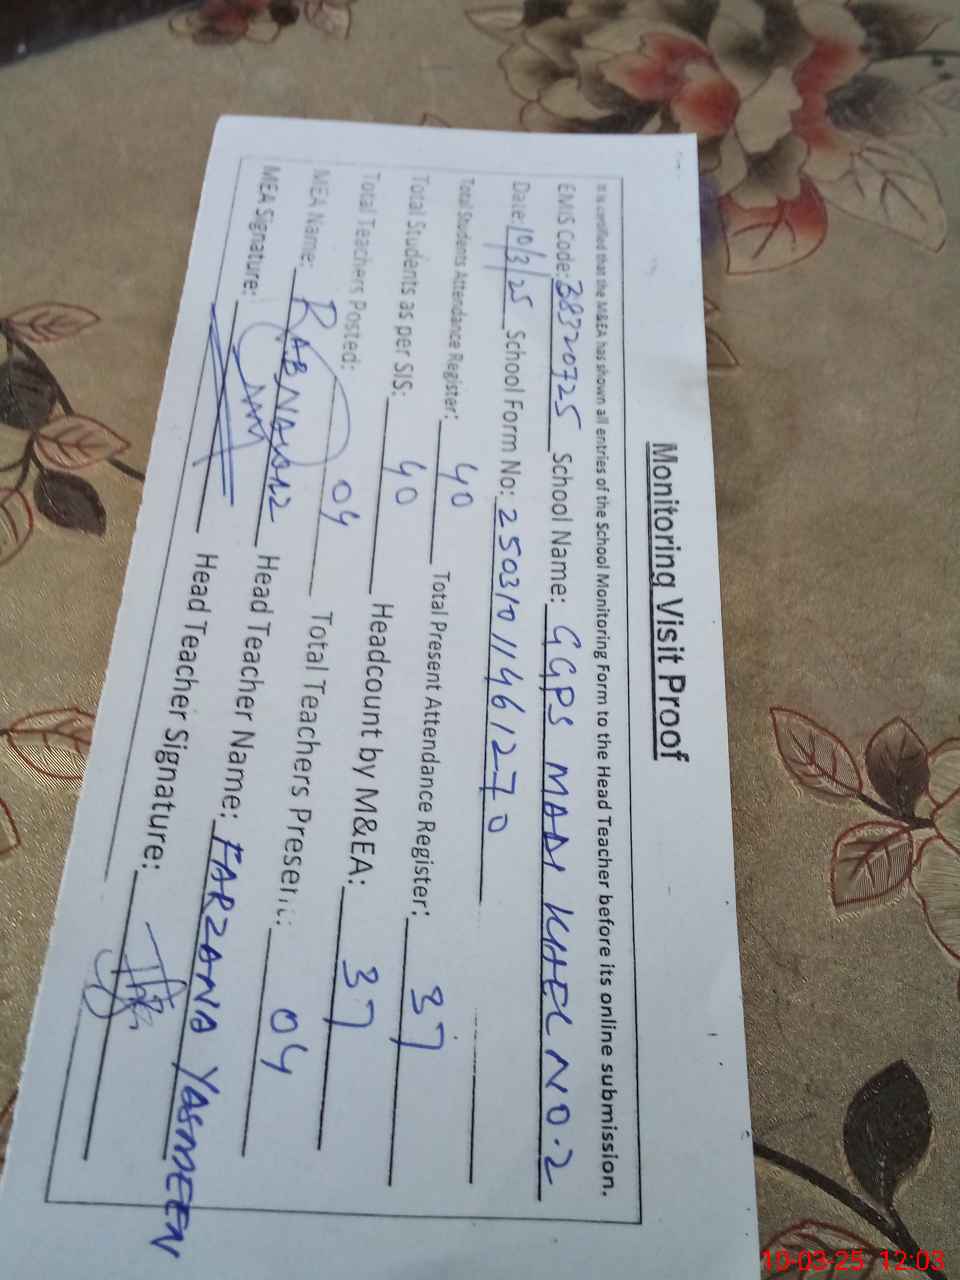 Monitoring Visit Proof
It is certified that the M&EA has shown all entries of the School Monitoring Form to the Head Teacher before its online submission.
EMIS Code: 38320725 School Name: GGPS MADI KHEL NO.2
Date: 10/3/25 School Form No: 25031011461270
Total Students Attendance Register: 40 Total Present Attendance Register: 37
Total Students as per SIS: 40 Headcount by M&EA: 37
Total Teachers Posted: 04 Total Teachers Present: 04
MEA Name: RABNAWAZ Head Teacher Name: FARZANA YASMEEN
MEA Signature: Head Teacher Signature:
10-03-25 12:03